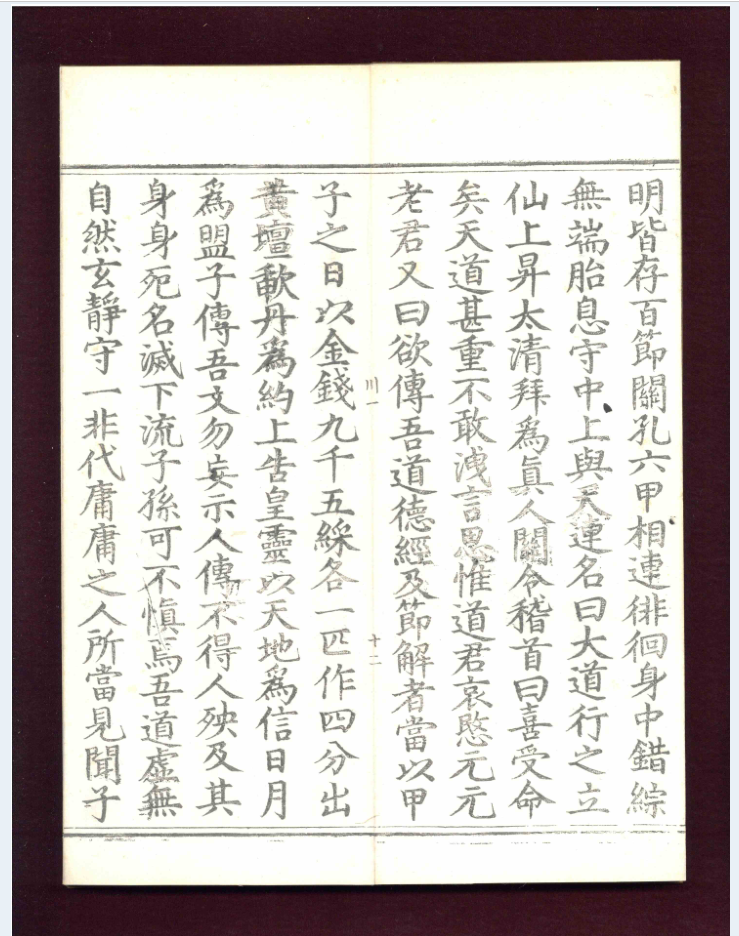 明皆存百節關孔六甲相連徘徊身中錯綜
無端胎息守中上與天連名曰大道行之立
仙上昇太清拜爲眞人關令稽首曰喜受命
矣天道甚重不敢洩言思惟道君哀愍元元
老君又曰欲傳吾道德經及節解者當以甲
川一
十二
子之日以金錢九千五綵各一匹作四分出
黃壇歃丹爲約上告皇靈以天地爲信日月
爲盟子傳吾文勿妄示人傳不得人殃及其
身身死名滅下流子孫可不愼焉吾道虛無
自然玄靜守一非代庸庸之人所當見聞子